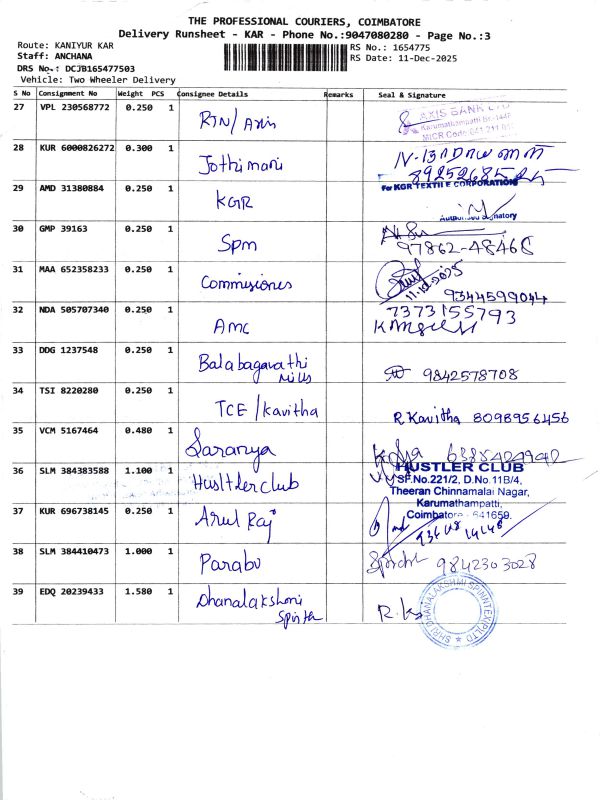 THE PROFESSIONAL COURIERS, COIMBATORE
Delivery Runsheet - KAR - Phone No.:9047080280 - Page No.:3
Route: KANIYUR KAR
RS No.: 1654775
Staff: ANCHANA
RS Date: 11-Dec-2025
DRS No.: DCJB165477503
Vehicle: Two Wheeler Delivery
S No Consignment No Weight PCS Consignee Details Remarks Seal & Signature
27 VPL 230568772 0.250 1 RTN/ Axis AXIS BANK LTD
Karumathampatti Br.-1448
MICR Code: 641 211 0
28 KUR 6000826272 0.300 1 Jothimani
29 AMD 31380884 0.250 1 KGR For KGR TEXTILE CORPORATION
Authorised Signatory
30 GMP 39163 0.250 1 Spm 97862-48468
31 MAA 652358233 0.250 1 Commisiones 11.12.2025
9344599044
32 NDA 505707340 0.250 1 AMC 7373155793
33 DDG 1237548 0.250 1 Balabagavathi
Mills 9842578708
34 TSI 8220280 0.250 1 TCE /kavitha R Kavitha 8098956456
35 VCM 5167464 0.480 1 Saranya
36 SLM 384383588 1.100 1 Husltler club HUSTLER CLUB
SF.No.221/2, D.No.11B/4,
Theeran Chinnamalai Nagar,
Karumathampatti,
Coimbatore - 641659.
37 KUR 696738145 0.250 1 Arul Raj
38 SLM 384410473 1.000 1 Parabu 9842303028
39 EDQ 20239433 1.580 1 Dhanalakshmi
Spinth SHRI DHANALAKSHMI SPINNTEX (P) LTD